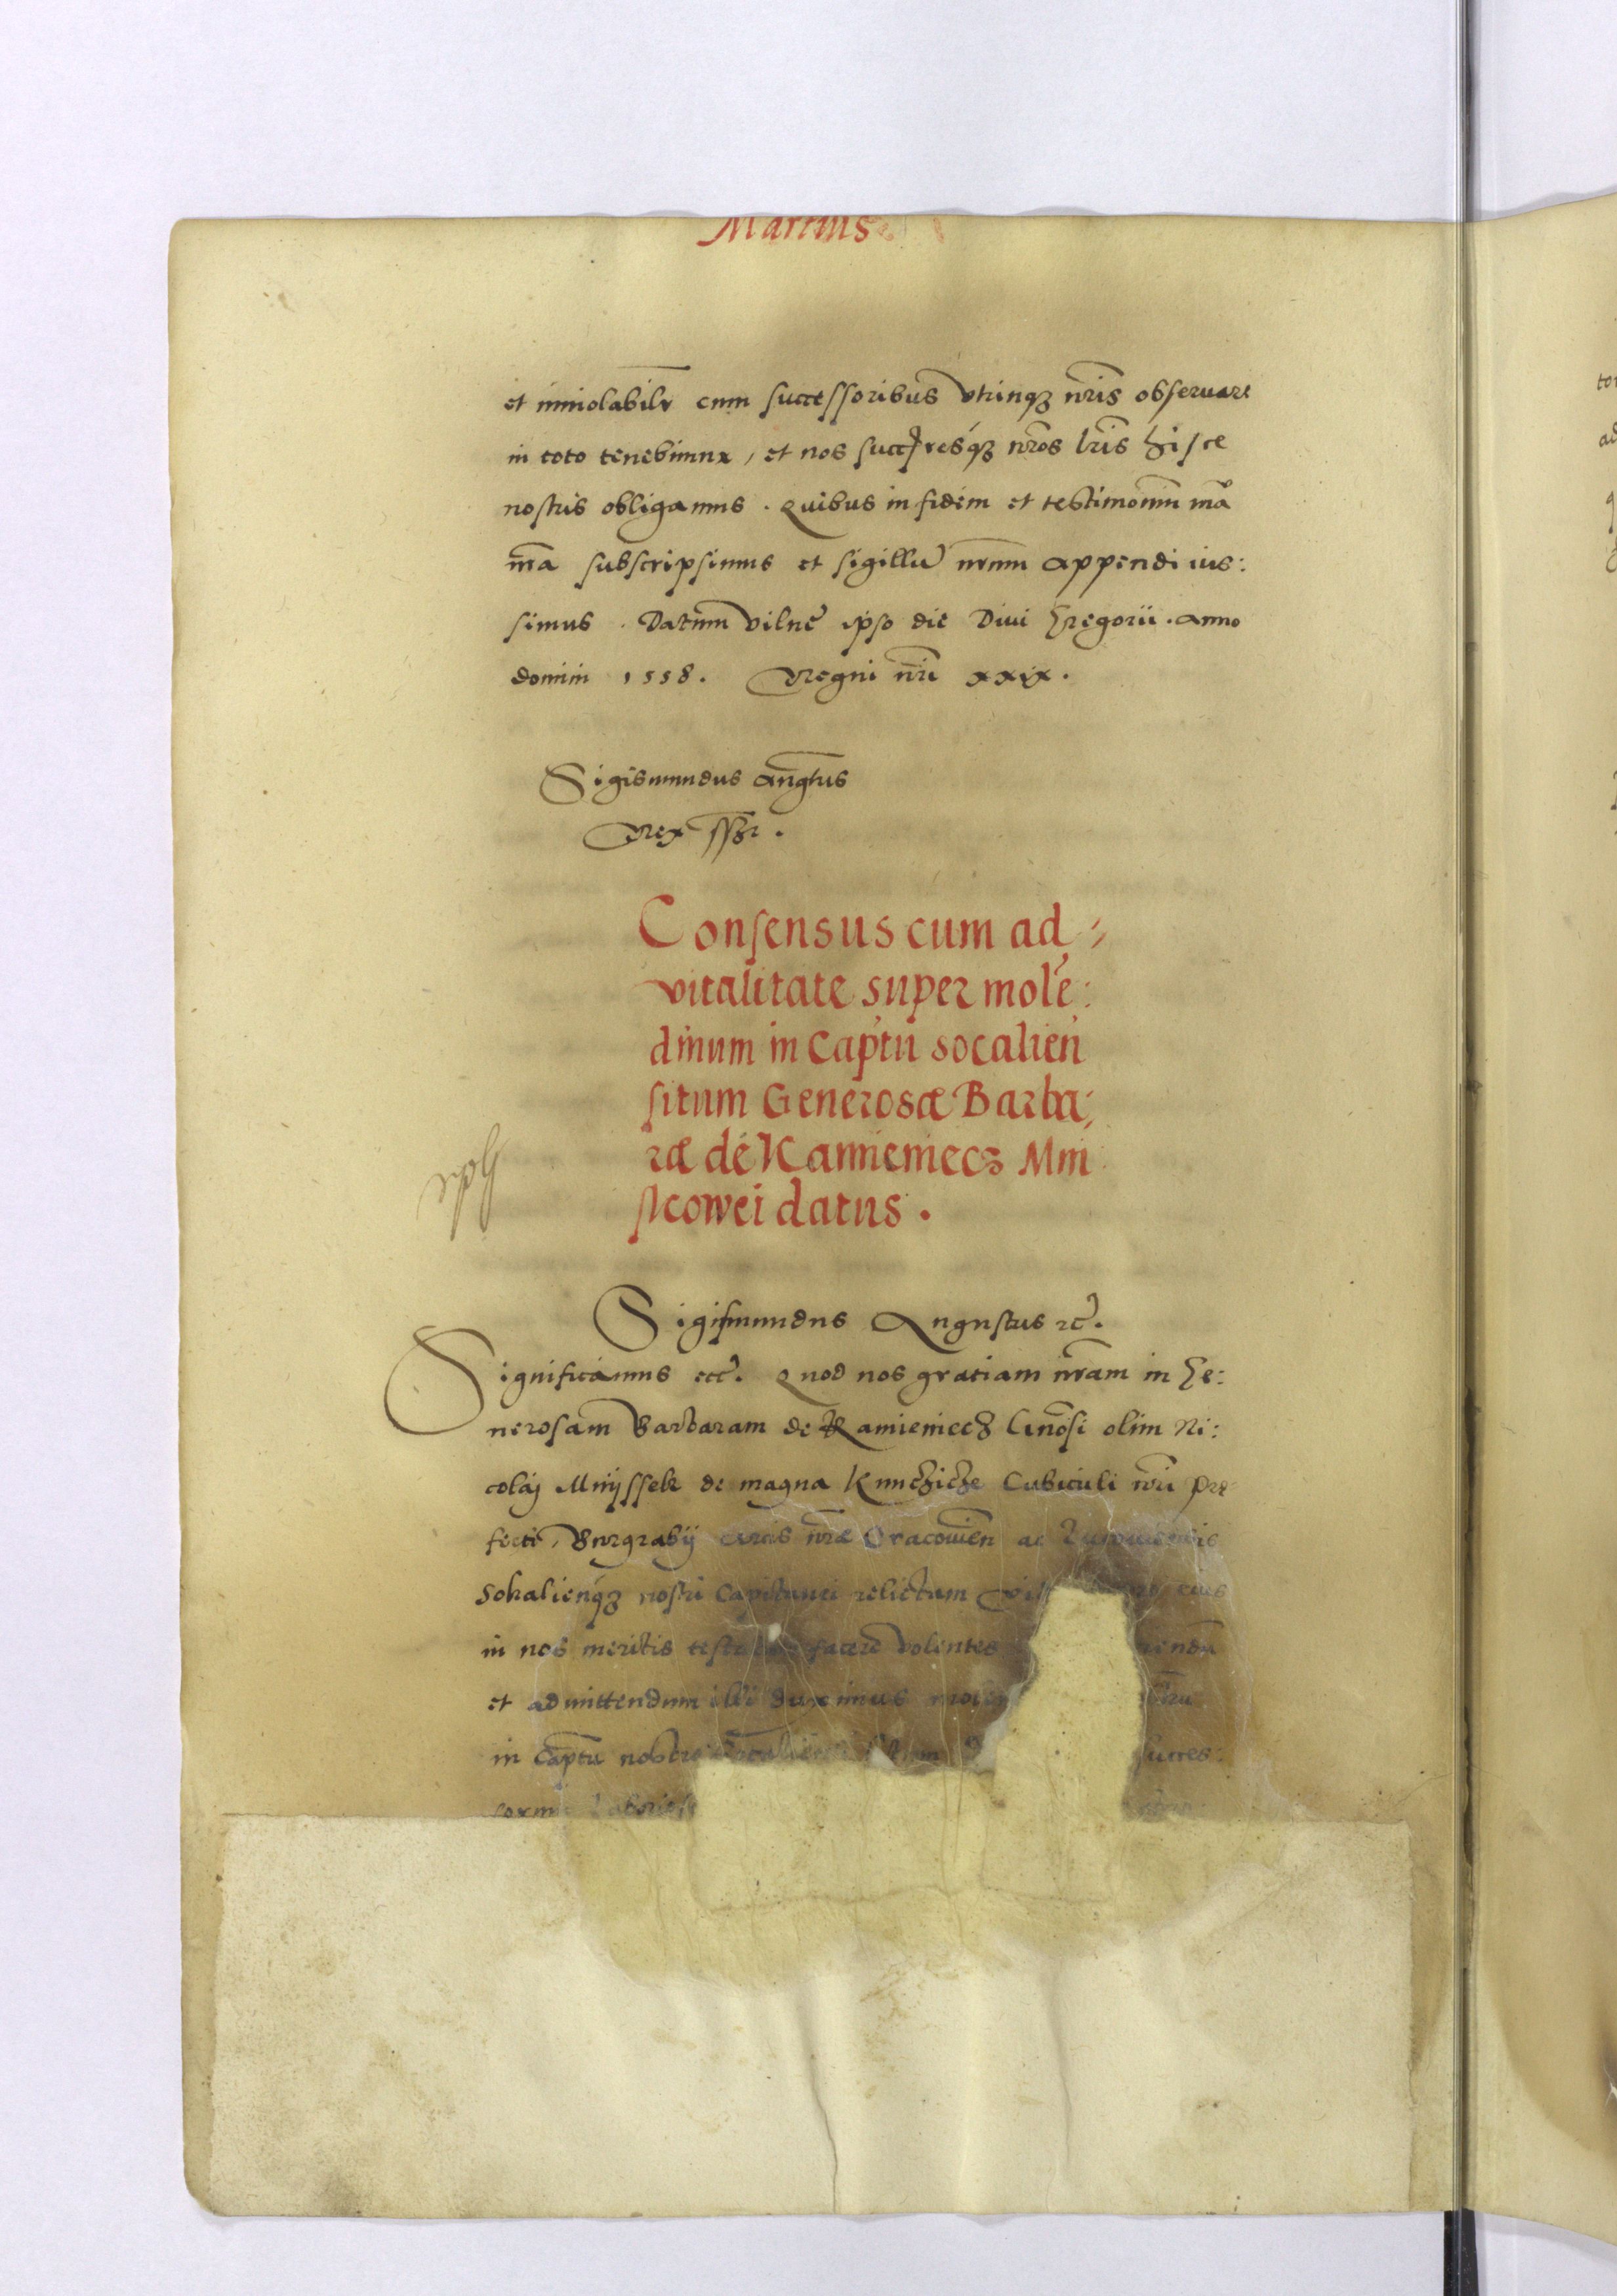 Martius
et inuiolabilr cum successoribus vtrinqz nris obseruare
in toto tenebimur, et nos succresqz nros lris hisce
nostris obligamus. Quibus in fidem et testimonim ma
nra subscripsimus et sigillu nrum appendi ius:
simus. Datum Vilne ipso die Diui Gregorii. anno
domini 1558. Regni nri xxix.
Sigismundus augtus
Rex sszr.
Consensus cum ad,
vitalitate super mole:
dinum in Captu socalien
situm Generosæ Barba:
ræ de Kamieniecz Mni
skowei datus.
Sigismundus Augustus rc.
Significamus etc. Quod nos gratiam nram in Ge:
nerosam Barbaram de Kamieniecz Gnosi olim Ni:
colaj Mnyssek de magna Kunczicze Cubiculi nri pre
fecti, Burgrabij arcis nræ Cracouien ac
Sokalienqz nostri Capitanei relictam eius
in nos meritis facere volentes
et admittendum illi duximus
in Captu nostro succes: